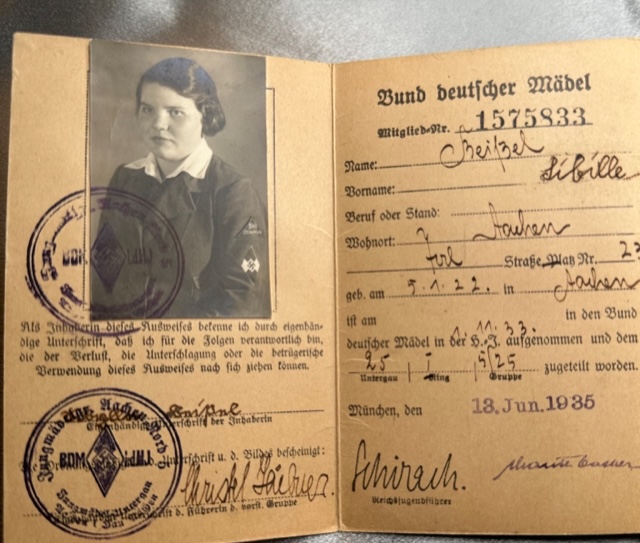 Als Inhaberin dieses Ausweises bekenne ich durch eigenhän-
dige Unterschrift, daß ich für die Folgen verantwortlich bin,
die der Verlust, die Unterschlagung oder die betrügerische
Verwendung dieses Ausweises nach sich ziehen können.
Eigenhändige Unterschrift der Inhaberin
Unterschrift u. d. Bildes bescheinigt:
Unterschrift d. Führerin d. vorst. Gruppe
BDM
Bund deutscher Mädel
Mitglied-Nr. 1575833
Name:
Vorname: Sibille
Beruf oder Stand:
Wohnort: Aachen
Straße Platz Nr. 23
geb. am 5.1.22. in Aachen
ist am 1.11.33. in den Bund
deutscher Mädel in der H.-J. aufgenommen und dem
25 I 5/25 zugeteilt worden.
Untergau Ring Gruppe
München, den 13. Jun. 1935
Schirach.
Reichsjugendführer